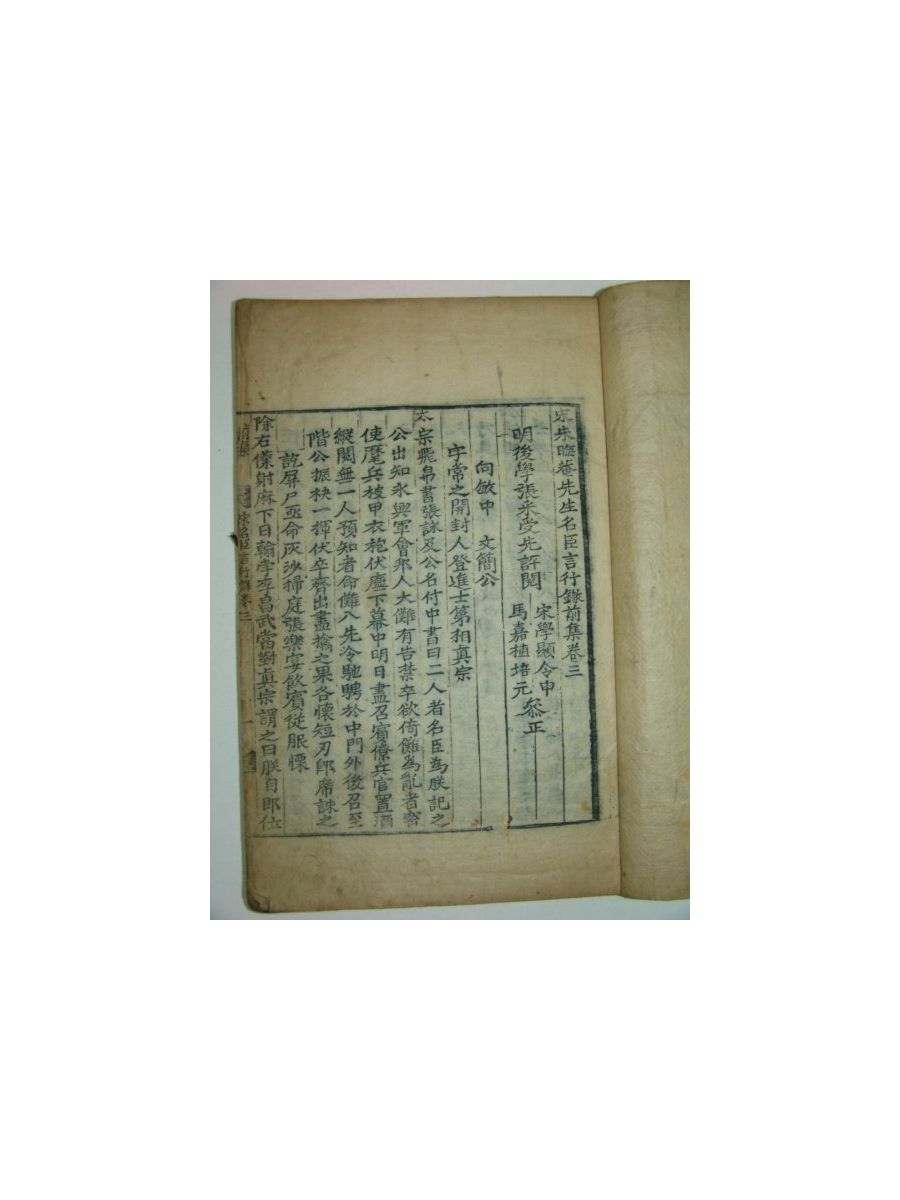 宋朱晦菴先生名臣言行錄前集卷三
宋學顯令申
明後學張采受先評閱
馬嘉植培元叅正
向敏中 文簡公
字常之開封人登進士第相真宗
太宗飛帛書張詠及公名付中書曰二人者名臣為朕記之
公出知永興軍會邦人大儺有告禁卒欲倚儺為亂者密
使麾兵被甲衣袍伏廡下幕中明日盡召賓僚兵官置酒
縱閱無一人預知者命儺入先令馳騁於中門外後召至
階公振袂一揮伏卒齊出盡擒之果各懷短刃即席誅之
訖屏尸亟命灰沙掃庭張樂宴飲賓從股慄
除右僕射麻下日翰學李昌武當對真宗謂之曰朕自即位
名臣言行錄卷三